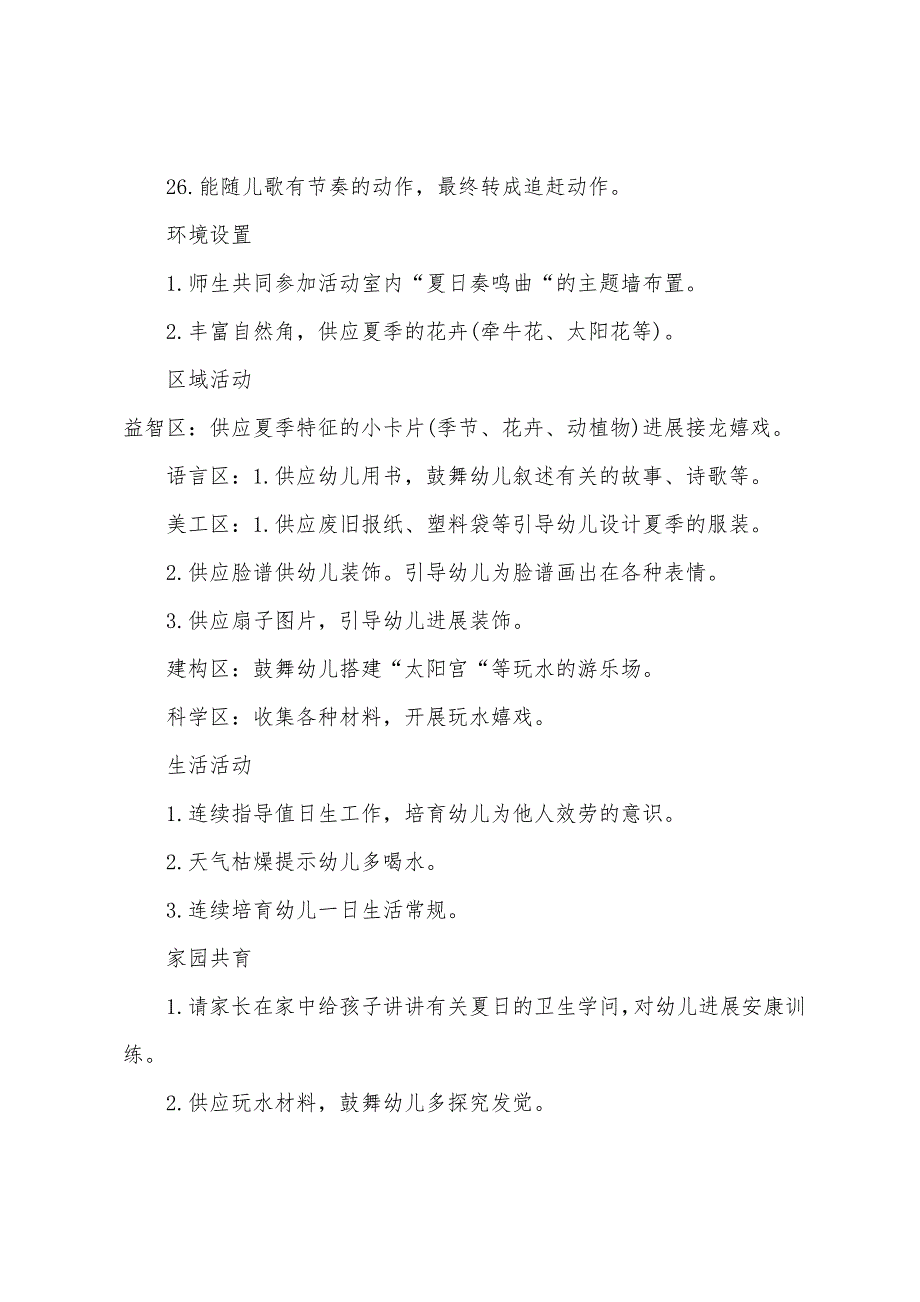 26.能随儿歌有节奏的动作，最终转成追赶动作。
环境设置
1.师生共同参加活动室内“夏日奏鸣曲“的主题墙布置。
2.丰富自然角，供应夏季的花卉(牵牛花、太阳花等)。
区域活动
益智区：供应夏季特征的小卡片(季节、花卉、动植物)进展接龙嬉戏。
语言区：1.供应幼儿用书，鼓舞幼儿叙述有关的故事、诗歌等。
美工区：1.供应废旧报纸、塑料袋等引导幼儿设计夏季的服装。
2.供应脸谱供幼儿装饰。引导幼儿为脸谱画出在各种表情。
3.供应扇子图片，引导幼儿进展装饰。
建构区：鼓舞幼儿搭建“太阳宫“等玩水的游乐场。
科学区：收集各种材料，开展玩水嬉戏。
生活活动
1.连续指导值日生工作，培育幼儿为他人效劳的意识。
2.天气枯燥提示幼儿多喝水。
3.连续培育幼儿一日生活常规。
家园共育
1.请家长在家中给孩子讲讲有关夏日的卫生学问，对幼儿进展安康训
练。
2.供应玩水材料，鼓舞幼儿多探究发觉。